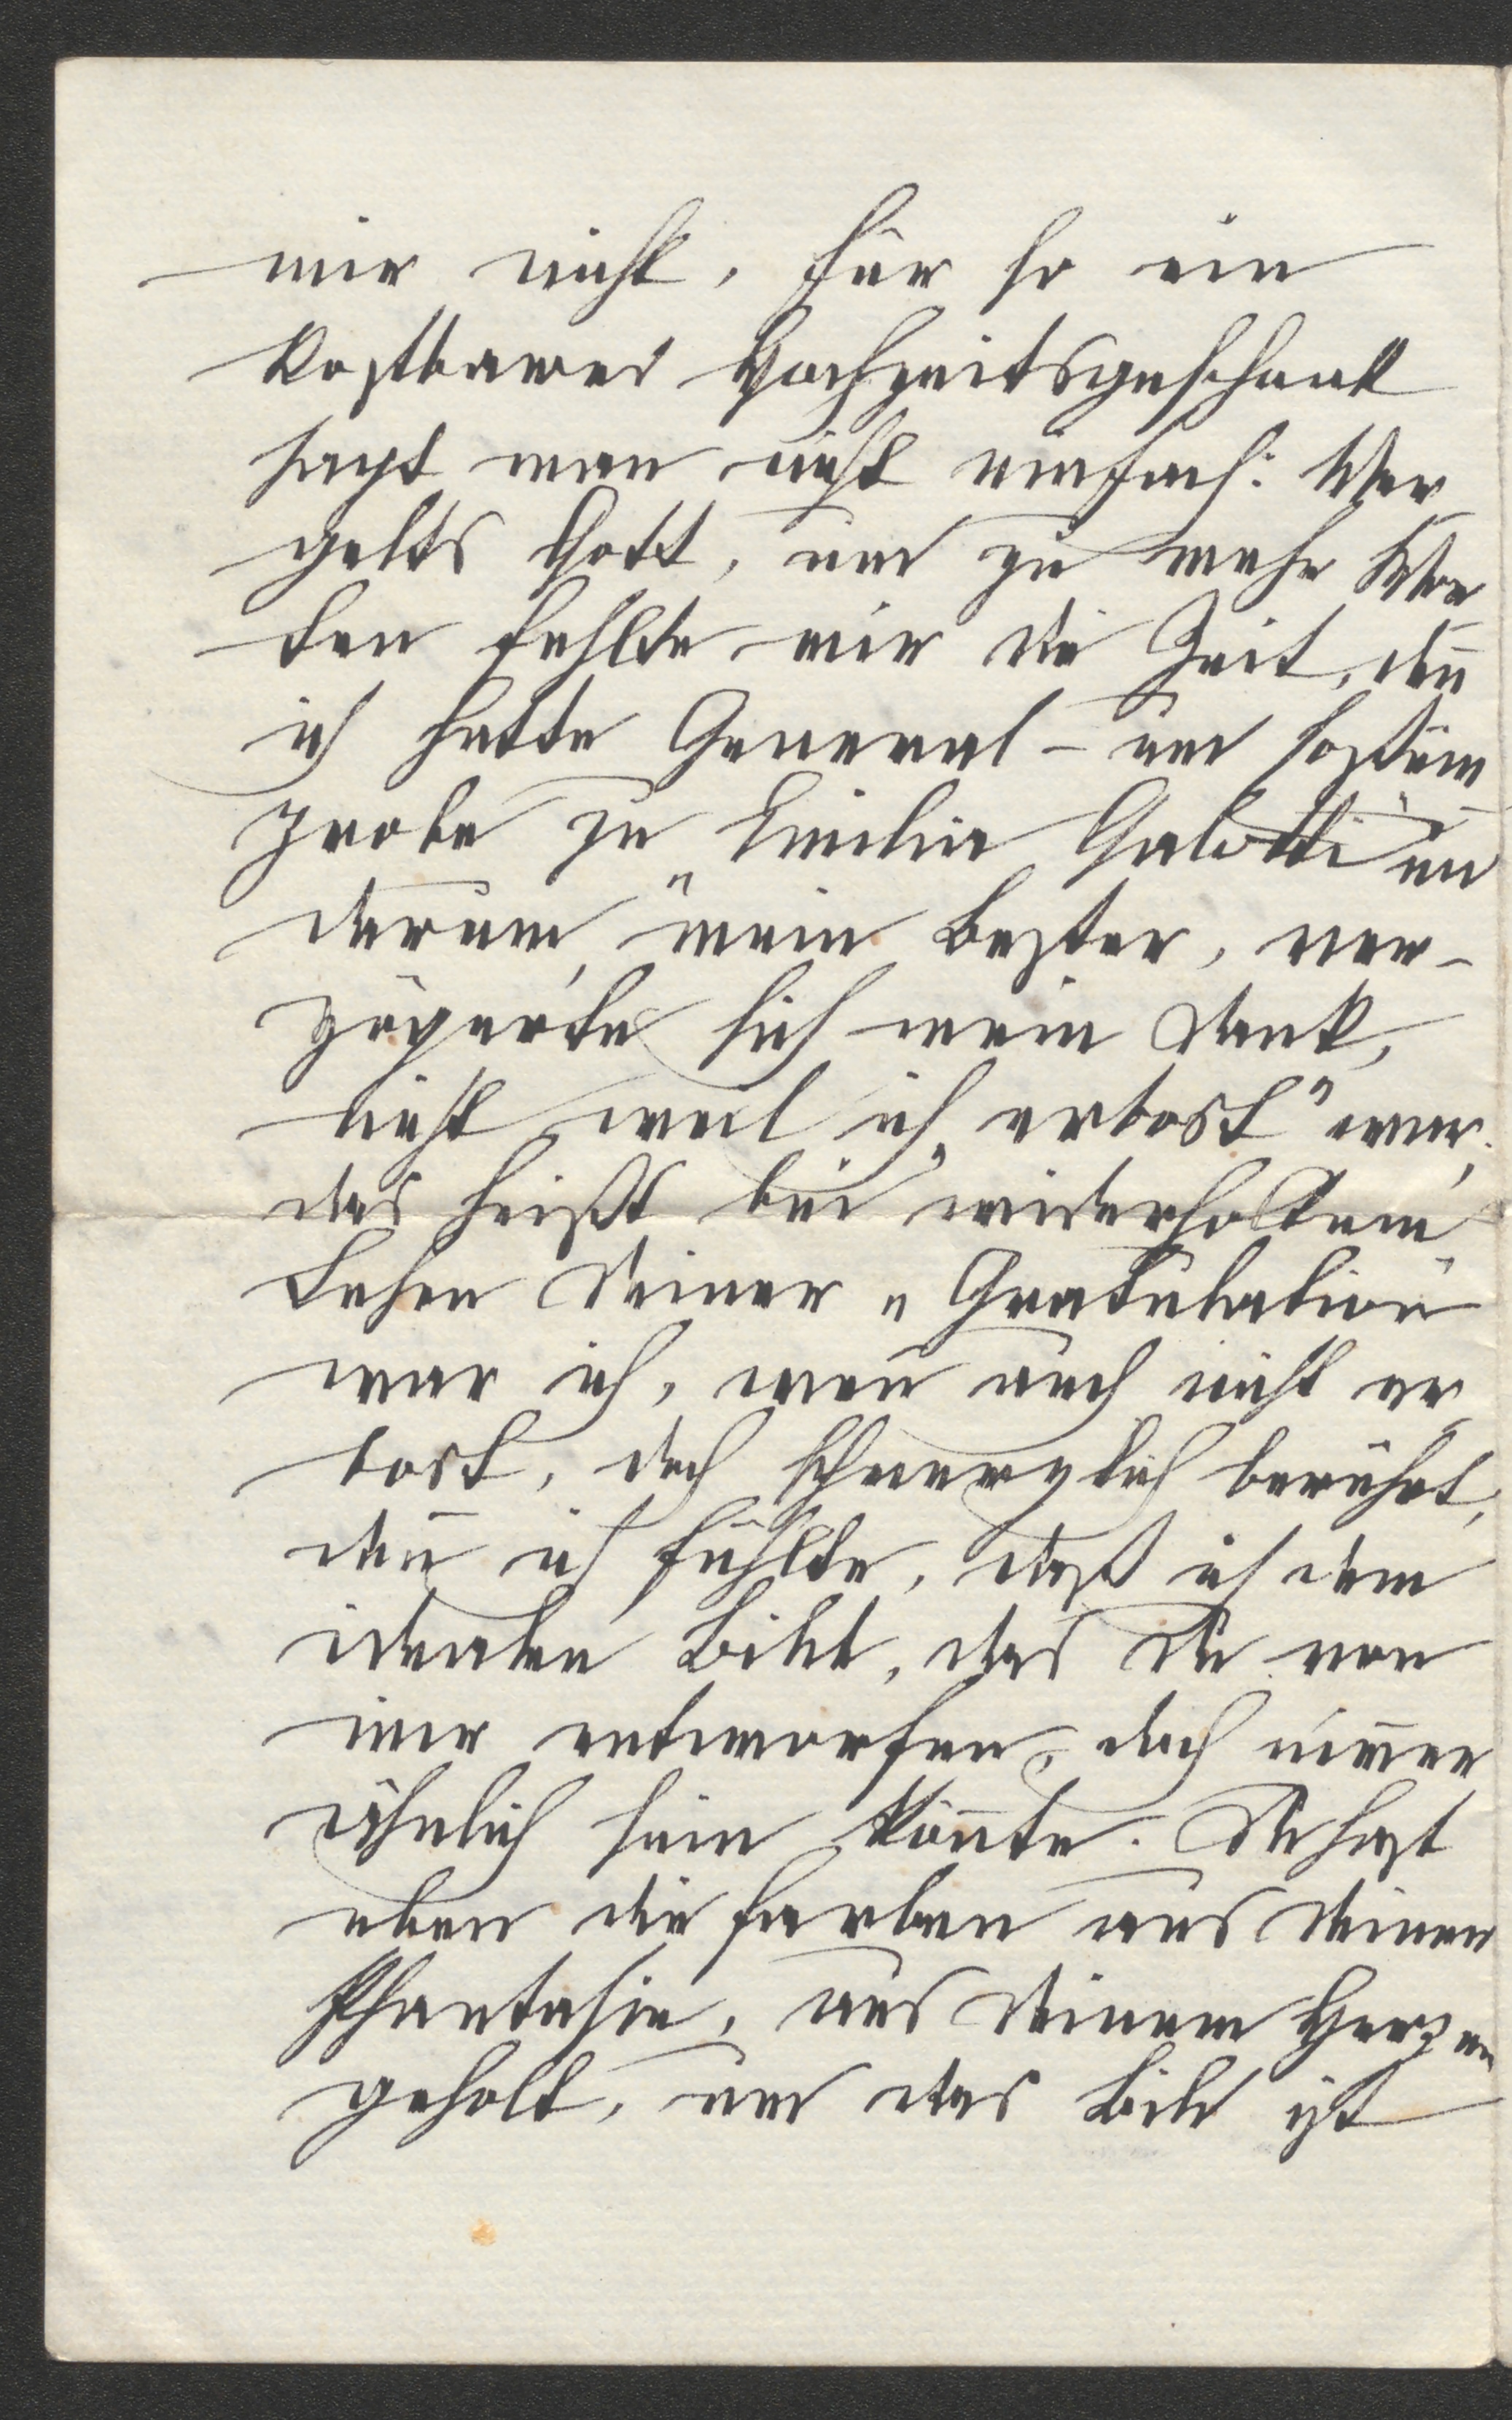 mir nicht, für so ein
kostbares Hochzeitsgeschenk
sagt man nicht einfach: Ver
gelts Gott, und zu mehr Wor
ten fehlte mir die Zeit, deñ
ich hatte General- und Kostüm
probe zu „Emilia Galotti" und
darum, mein Bester, ver-
zögerte sich mein Dank,
nicht weil ich „erbost" war,
das heißt bei widerholtem
Lesen Deiner „Gratulation"
war ich, weñ auch nicht er
bost, doch schmerzlich berührt,
deñ ich fühlte, daß ich dem
idealen Bild, das Du von
mir entworfen, doch nim̃er
ähnlich sein kön̄te. Du hast
eben die Farben aus Deiner
Phantasie, aus Deinem Herzen
geholt, und das Bild ist